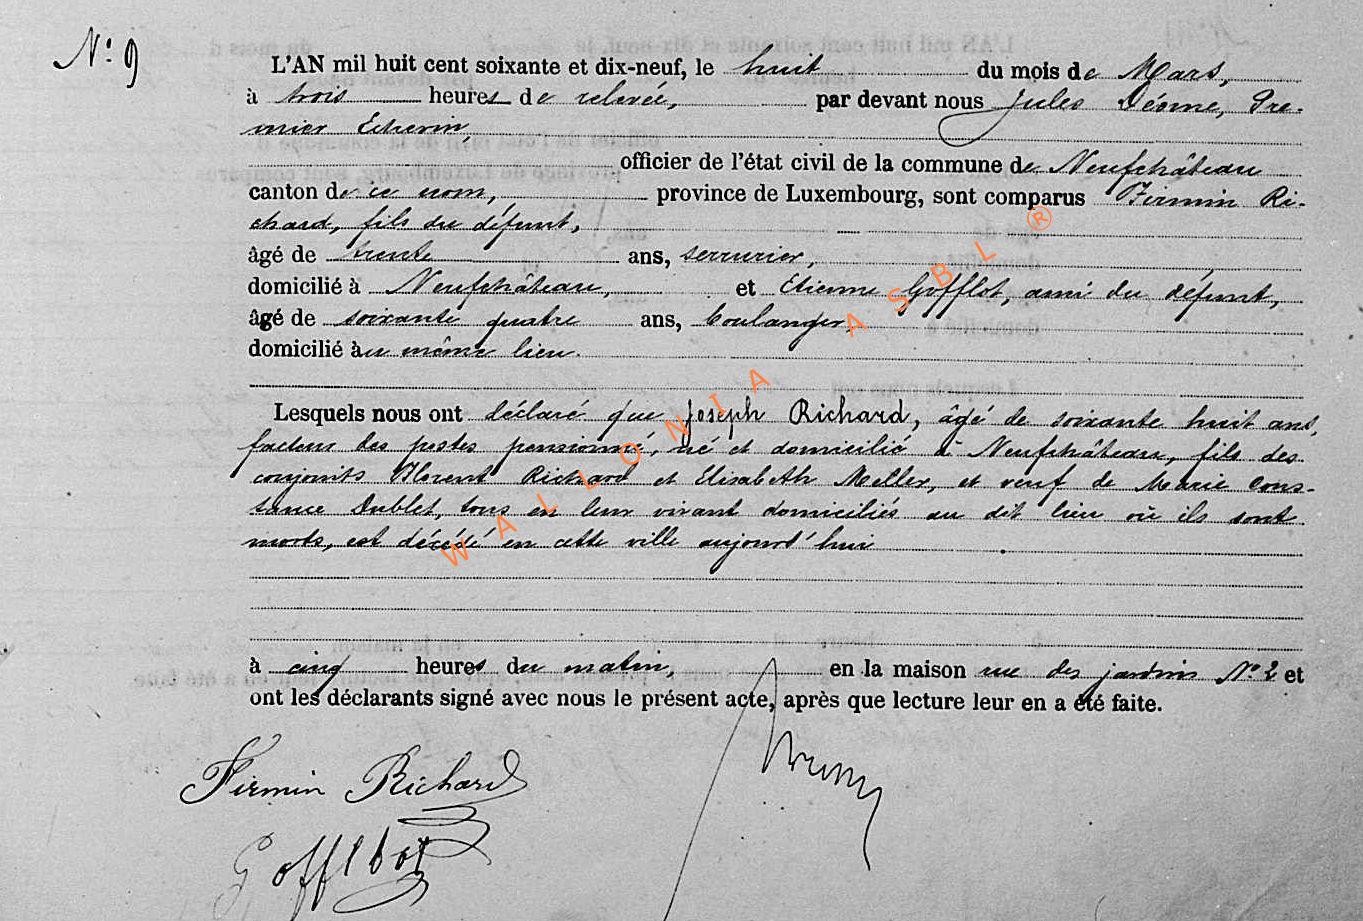 N° 9
L'AN mil huit cent soixante et dix-neuf, le huit du mois de Mars,
à trois heures de relevée, par devant nous Jules Déome, Pre-
mier Echevin,
officier de l'état civil de la commune de Neufchâteau
canton de ce nom, province de Luxembourg, sont comparus Firmin Ri-
chard, fils du défunt,
âgé de trente ans, serrurier,
domicilié à Neufchâteau, et Etienne Gofflot, ami du défunt,
âgé de soixante quatre ans, boulanger,
domicilié au même lieu.
Lesquels nous ont déclaré que Joseph Richard, âgé de soixante huit ans,
facteur des postes pensionné, né et domicilié à Neufchâteau, fils des
conjoints Florent Richard et Elisabeth Meller, et veuf de Marie Cons-
tance Dublet, tous en leur vivant domiciliés au dit lieu où ils sont
morts, est décédé en cette ville aujourd'hui
à cinq heures du matin, en la maison rue des jardins N° 2 et
ont les déclarants signé avec nous le présent acte, après que lecture leur en a été faite.
Firmin Richard
Gofflot
WALLONIA ASBL ®